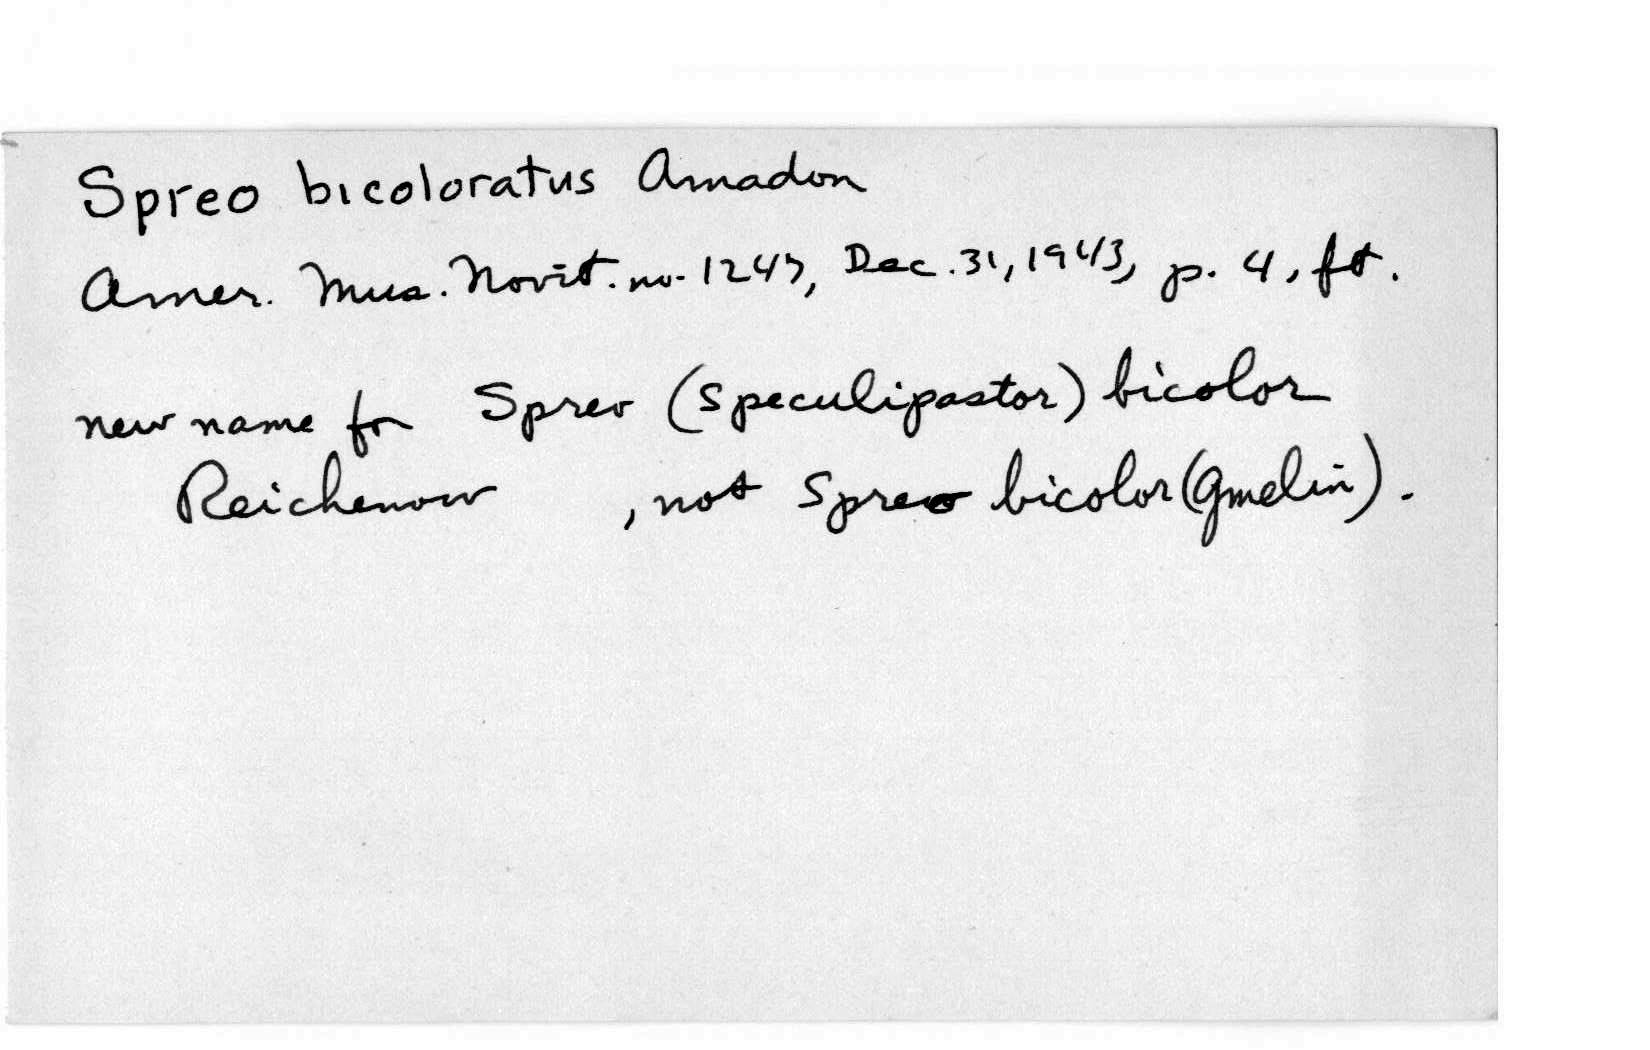 Spreo bicoloratus Amadon
Amer. Mus. Novit. no. 1247, Dec. 31, 1943, p. 4, ft.
new name for Spreo (Speculipastor) bicolor
Reichenow , not Spreo bicolor (Gmelin).